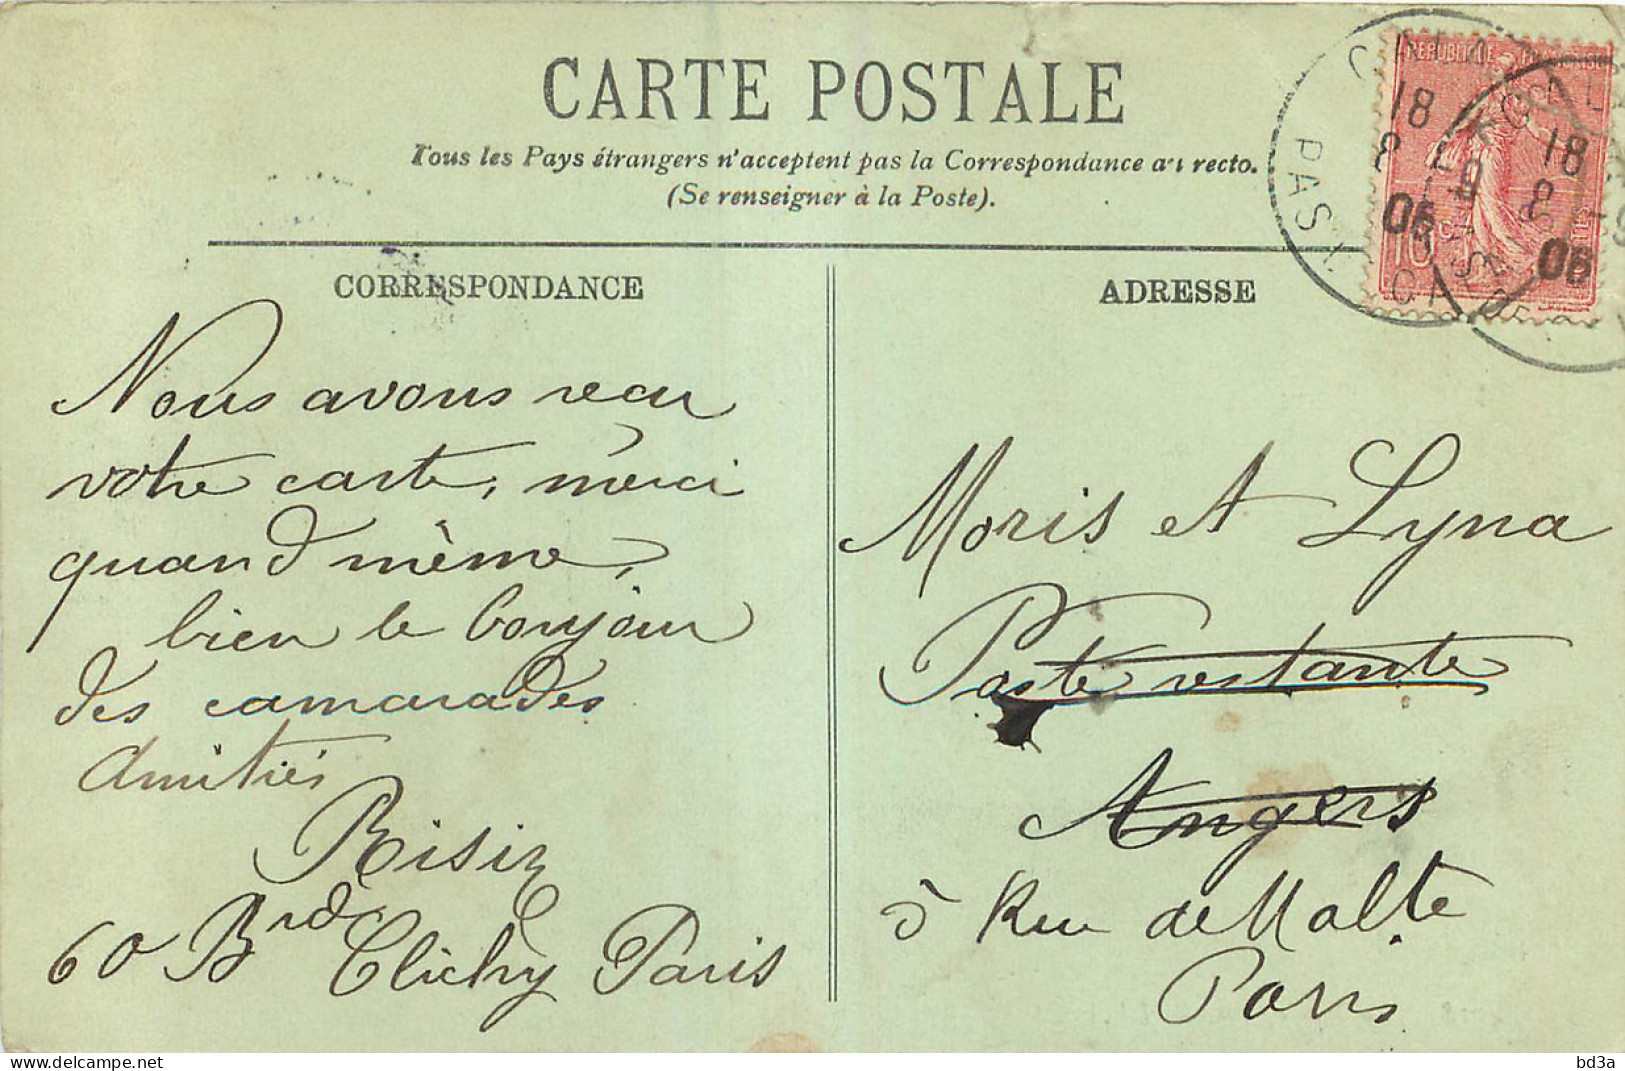 CARTE POSTALE
Tous les Pays étrangers n'acceptent pas la Correspondance au recto.
(Se renseigner à la Poste).
CORRESPONDANCE
Nous avons reçu
votre carte, merci
quand même,
bien le bonjour
des camarades
Amitiés
Risin
60 Brd Clichy Paris
ADRESSE
Moris et Lyna
Poste restante
Angers
5 Rue de Malte
Paris
CALAIS
18
8
06
PAS DE CALAIS
18
8
06
10
bd3a